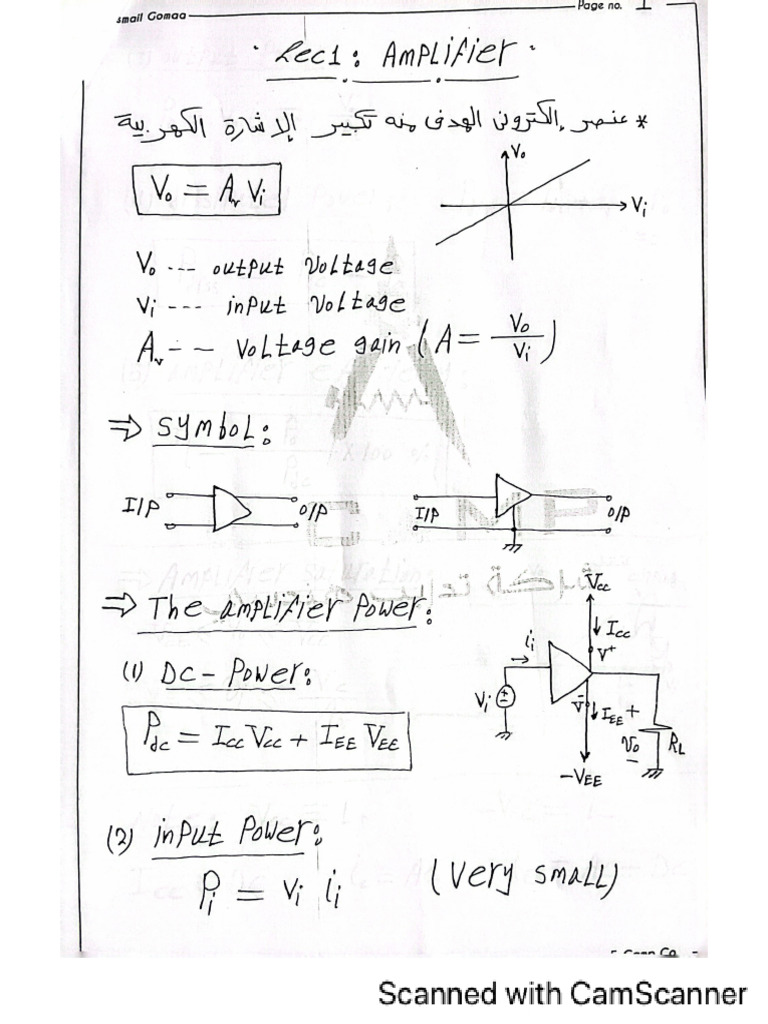 small Gomaa
Page no. 1
Lec1: Amplifier
* عنصر إلكترونى الهدف منه تكبير الإشارة الكهربية
Vo = Av Vi
Vo
Vi
Vo --- output voltage
Vi --- input voltage
Av -- voltage gain (A = Vo/Vi)
⇒ symbol:
I/P
O/P
I/P
O/P
⇒ The amplifier Power:
Vcc
Icc
V+
ii
Vi
(1) Dc-Power:
Pdc = Icc Vcc + IEE VEE
V-
IEE
+
Vo
-
RL
-VEE
(2) input Power:
Pi = Vi ii (very small)
Scanned with CamScanner